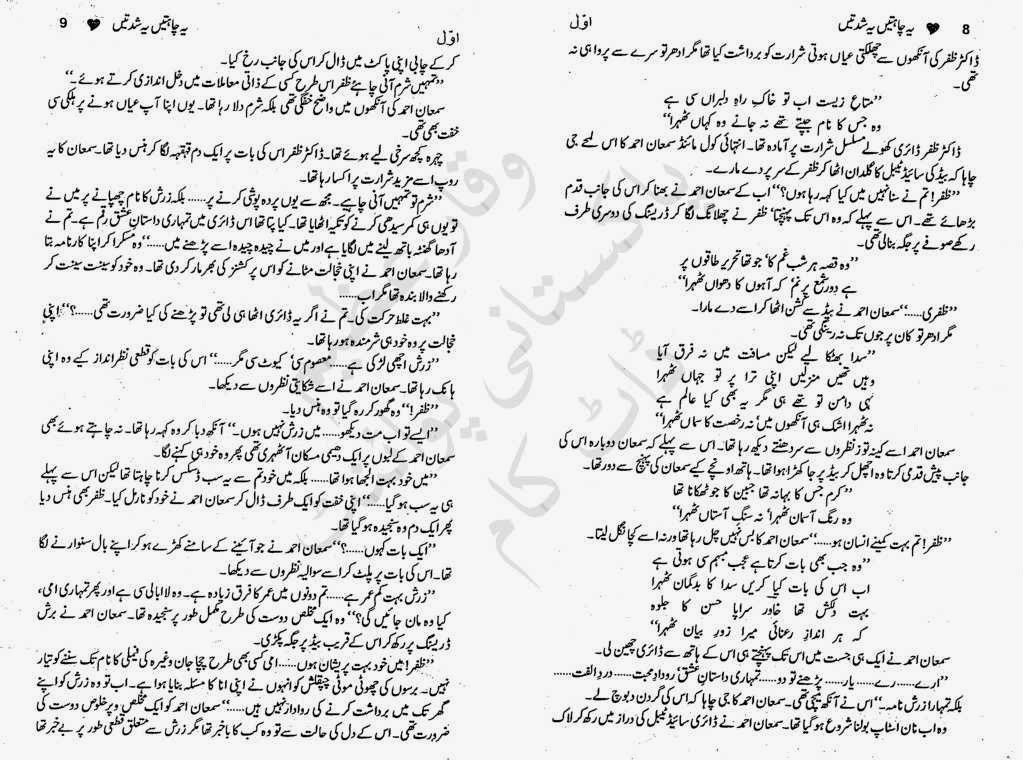 8 ♥ یہ چاہتیں یہ شدتیں
اوّل
ڈاکٹر ظفر کی آنکھوں سے چھلکتی عیاں ہوتی شرارت کو برداشت کیا تھا مگر ادھر تو سرے سے پروا ہی نہ
تھی۔
”متاعِ زیست اب تو خاکِ راہِ دلبراں سی ہے
وہ جس کا نام جپتے تھے نہ جانے وہ کہاں ٹھہرا“
ڈاکٹر ظفر ڈائری کھولے مسلسل شرارت پر آمادہ تھا۔ انتہائی کول مائنڈ سمعان احمد کا اس لمحے جی
چاہا کہ بیڈ کی سائیڈ ٹیبل کا گلدان اٹھا کر ظفر کے سر پر دے مارے۔
”ظفر! تم نے سنا نہیں میں کیا کہہ رہا ہوں؟“ اب کے سمعان احمد نے بھنا کر اس کی جانب قدم
بڑھائے تھے۔ اس سے پہلے کہ وہ اس تک پہنچتا‘ ظفر نے چھلانگ لگا کر ڈریسنگ کی دوسری طرف
رکھے صوفے پر جگہ بنالی تھی۔
”وہ قصہ ہر شبِ غم کا‘ جو تھا تحریر طاقوں پر
ہے دورِ شمع پرنم‘ کہ آہوں کا دھواں ٹھہرا“
”ظفری......“ سمعان احمد نے بیڈ سے کشن اٹھا کر اسے دے مارا۔
مگر ادھر تو کان پر جوں تک نہ رینگی تھی۔
”سدا بھٹکا کیے لیکن مسافت میں نہ فرق آیا
وہیں تھیں منزلیں اپنی ترا پر تو جہاں ٹھہرا
تہی دامن تو تھے ہی مگر یہ بھی کیا عالم ہے
نہ ٹھہرا اشک ہی آنکھوں میں‘ نہ رخصت کا سماں ٹھہرا“
سمعان احمد اسے کینہ توز نظروں سے سر دھنتے دیکھ رہا تھا۔ اس سے پہلے کہ سمعان دوبارہ اس کی
جانب پیش قدمی کرتا وہ اچھل کر بیڈ پر جا کھڑا ہوا تھا۔ ہاتھ اونچے کیے سمعان کی پہنچ سے دور تھا۔
”کرم جس کا بہانہ تھا جبین کا جو ٹھکانا تھا
وہ رنگ آسمان ٹھہرا‘ نہ سنگِ آستاں ٹھہرا“
”ظفر! تم بہت کمینے انسان ہو......“ سمعان احمد کا بس نہیں چل رہا تھا ورنہ اسے کچا نگل لیتا۔
”وہ جب بھی بات کرتا ہے عجب مبہم سی ہوتی ہے
اب اس کی بات کیا کریں سدا کا بدگمان ٹھہرا
بہت دلکش تھا خاور سراپا حسن کا جلوہ
کہ ہر اندازِ رعنائی میرا زورِ بیان ٹھہرا“
سمعان احمد نے ایک ہی جست میں اس تک پہنچتے ہی اس کے ہاتھ سے ڈائری چھین لی۔
”ارے...... رے...... یار...... پڑھنے تو دو...... تمہاری داستانِ عشق‘ رودادِ محبت...... دردِ الفت......
بلکہ تمہارا زرش نامہ۔“ اس نے آنکھ میچی تھی۔ سمعان احمد کا جی چاہا کہ اس کی گردن دبوچ لے۔
وہ اب نان اسٹاپ بولنا شروع ہو گیا تھا۔ سمعان احمد نے ڈائری سائیڈ ٹیبل کی دراز میں رکھ کر لاک
یہ چاہتیں یہ شدتیں ♥ 9
اوّل
کر کے چابی اپنی پاکٹ میں ڈال کر اس کی جانب رخ کیا۔
”تمہیں شرم آنی چاہئے ظفر اس طرح کسی کے ذاتی معاملات میں دخل اندازی کرتے ہوئے۔“
سمعان احمد کی آنکھوں میں واضح خفگی تھی بلکہ شرم دلا رہا تھا۔ یوں اپنا آپ عیاں ہونے پر ہلکی سی
خفت بھی تھی۔
چہرہ کچھ سرخی لیے ہوئے تھا۔ ڈاکٹر ظفر اس کی بات پر ایک دم قہقہہ لگا کر ہنس دیا تھا۔ سمعان کا یہ
روپ اسے مزید شرارت پر اکسا رہا تھا۔
”شرم تو تمہیں آنی چاہیے۔ مجھ سے یوں پردہ پوشی کرنے پر...... بلکہ زرش کا نام چھپانے پر میں نے
تو یوں ہی کمر سیدھی کرنے کو تکیہ اٹھایا تھا۔ کیا پتا تھا اس ڈائری میں تمہاری داستانِ عشق رقم ہے۔ تم نے
آدھا گھنٹہ باتھ لینے میں لگایا ہے اور میں نے چیدہ چیدہ اسے پڑھنے میں......“ وہ مسکرا کر اپنا کارنامہ بتا
رہا تھا۔ سمعان احمد نے اپنی خجالت مٹانے کو اس پر کشنز کی بھرمار کر دی تھا۔ وہ خود کو سینت سینت کر
رکھنے والا بندہ تھا مگر اب......
”بہت غلط حرکت کی۔ تم نے اگر یہ ڈائری اٹھا ہی لی تھی تو پڑھنے کی کیا ضرورت تھی......؟“ اپنی
خجالت پر وہ خود ہی شرمندہ ہو رہا تھا۔
”زرش اچھی لڑکی ہے...... معصوم سی‘ کیوٹ سی مگر......“ اس کی بات کو قطعی نظر انداز کیے وہ اپنی
ہانک رہا تھا۔ سمعان احمد نے اسے شکایتی نظروں سے دیکھا۔
”ظفر!“ وہ گھور کر رہ گیا تو وہ ہنس دیا۔
”ایسے تو اب مت دیکھو...... میں زرش نہیں ہوں۔“ آنکھ دبا کر وہ کہہ رہا تھا۔ نہ چاہتے ہوئے بھی
سمعان احمد کے لبوں پر ایک دھیمی مسکان آ ٹھہری تھی پھر وہ خود ہی کہنے لگا۔
”میں خود بہت الجھا ہوا تھا...... بلکہ میں خود تم سے یہ سب ڈسکس کرنا چاہتا تھا لیکن اس سے پہلے
ہی یہ سب ہو گیا......“ اپنی خفت کو ایک طرف ڈال کر سمعان احمد نے خود کو نارمل کیا۔ ظفر بھی ہنس دیا
پھر ایک دم وہ سنجیدہ ہو گیا تھا۔
”ایک بات کہوں......؟“ سمعان احمد نے جو آئینے کے سامنے کھڑے ہو کر اپنے بال سنوارنے لگا
تھا۔ اس کی بات پر پلٹ کر اسے سوالیہ نظروں سے دیکھا۔
”زرش بہت کم عمر ہے...... تم دونوں میں عمر کا فرق زیادہ ہے۔ وہ لاابالی سی ہے اور پھر تمہاری امی‘
کیا وہ مان جائیں گی؟“ وہ ایک مخلص دوست کی طرح مکمل طور پر سنجیدہ تھا۔ سمعان احمد نے برش
ڈریسنگ پر رکھ کر اس کے قریب بیڈ پر جگہ پکڑی۔
”ظفر! میں خود بہت پریشان ہوں...... امی کسی بھی طرح چچا جان وغیرہ کی فیملی کا نام تک سننے کو تیار
نہیں۔ برسوں کی چھوٹی موٹی چپقلش کو انہوں نے اپنی انا کا مسئلہ بنایا ہوا ہے۔ اب تو وہ زرش کو اپنے
گھر تک میں برداشت کرنے کی روادار نہیں ہیں......“ سمعان احمد کو ایک مخلص و پرخلوص دوست کی
ضرورت تھی۔ اس کے دل کی حالت سے تو وہ کب کا باخبر تھا مگر زرش سے متعلق قطعی طور پر بے خبر تھا
پاکستانی پوائنٹ
ڈاٹ کام